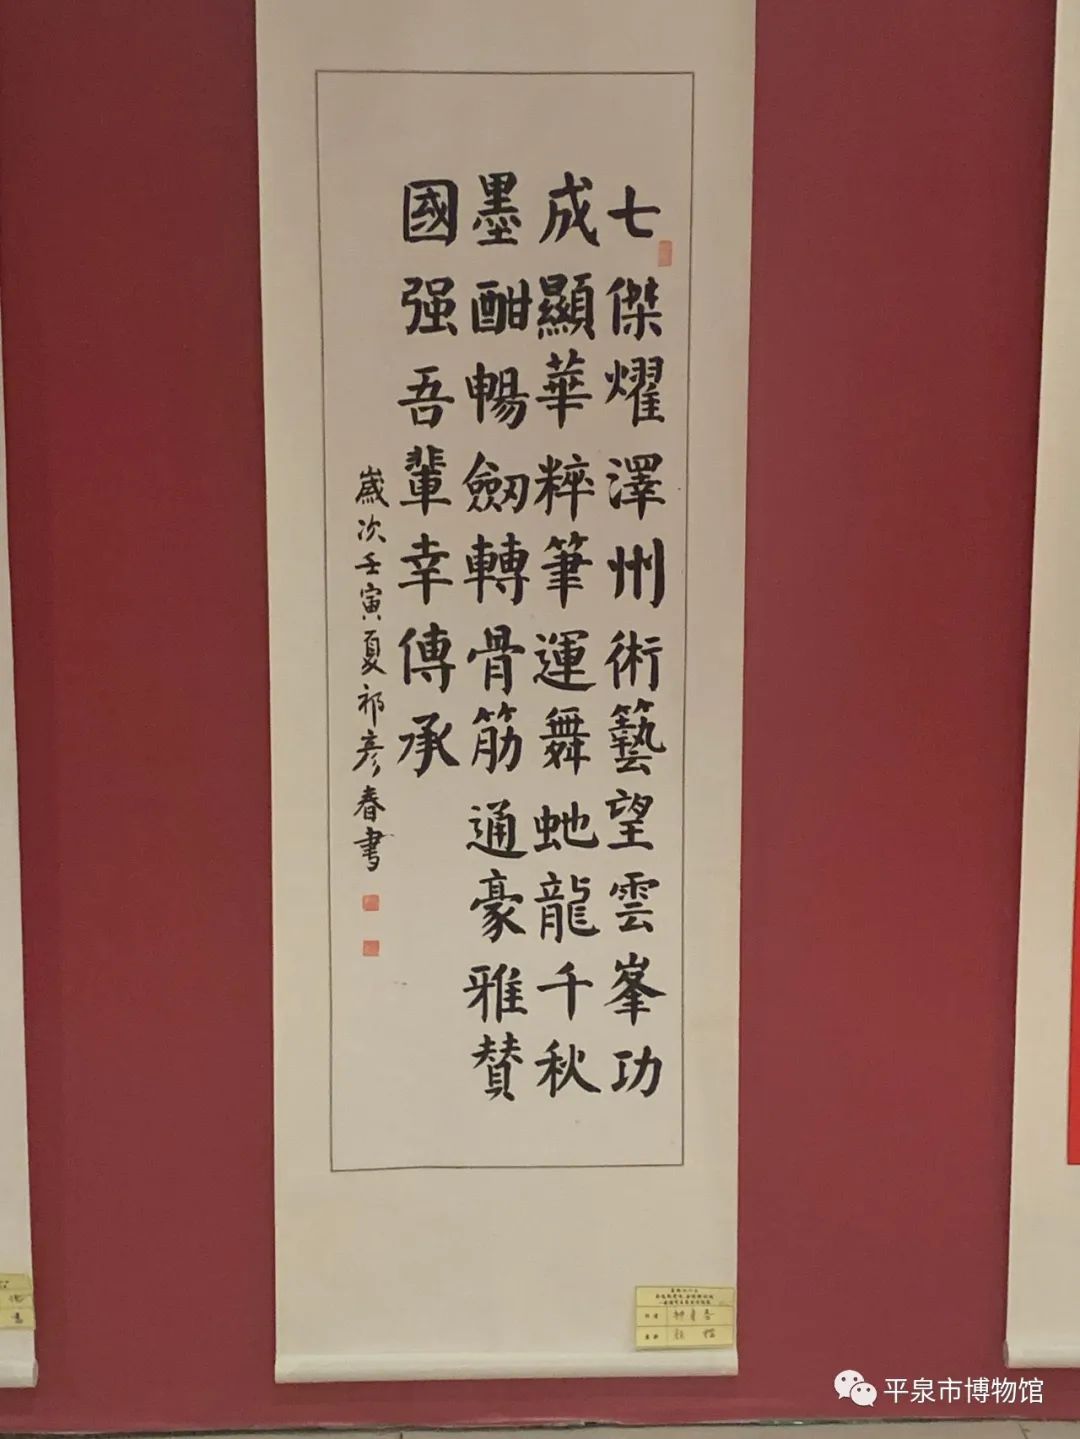 七傑燿澤州術藝望雲峯功
成顯華粹筆運舞虵龍千秋
墨酣暢劔轉骨筋通豪雅贊
國强吾輩幸傳承
歲次壬寅夏祁彥春書
平泉市博物馆